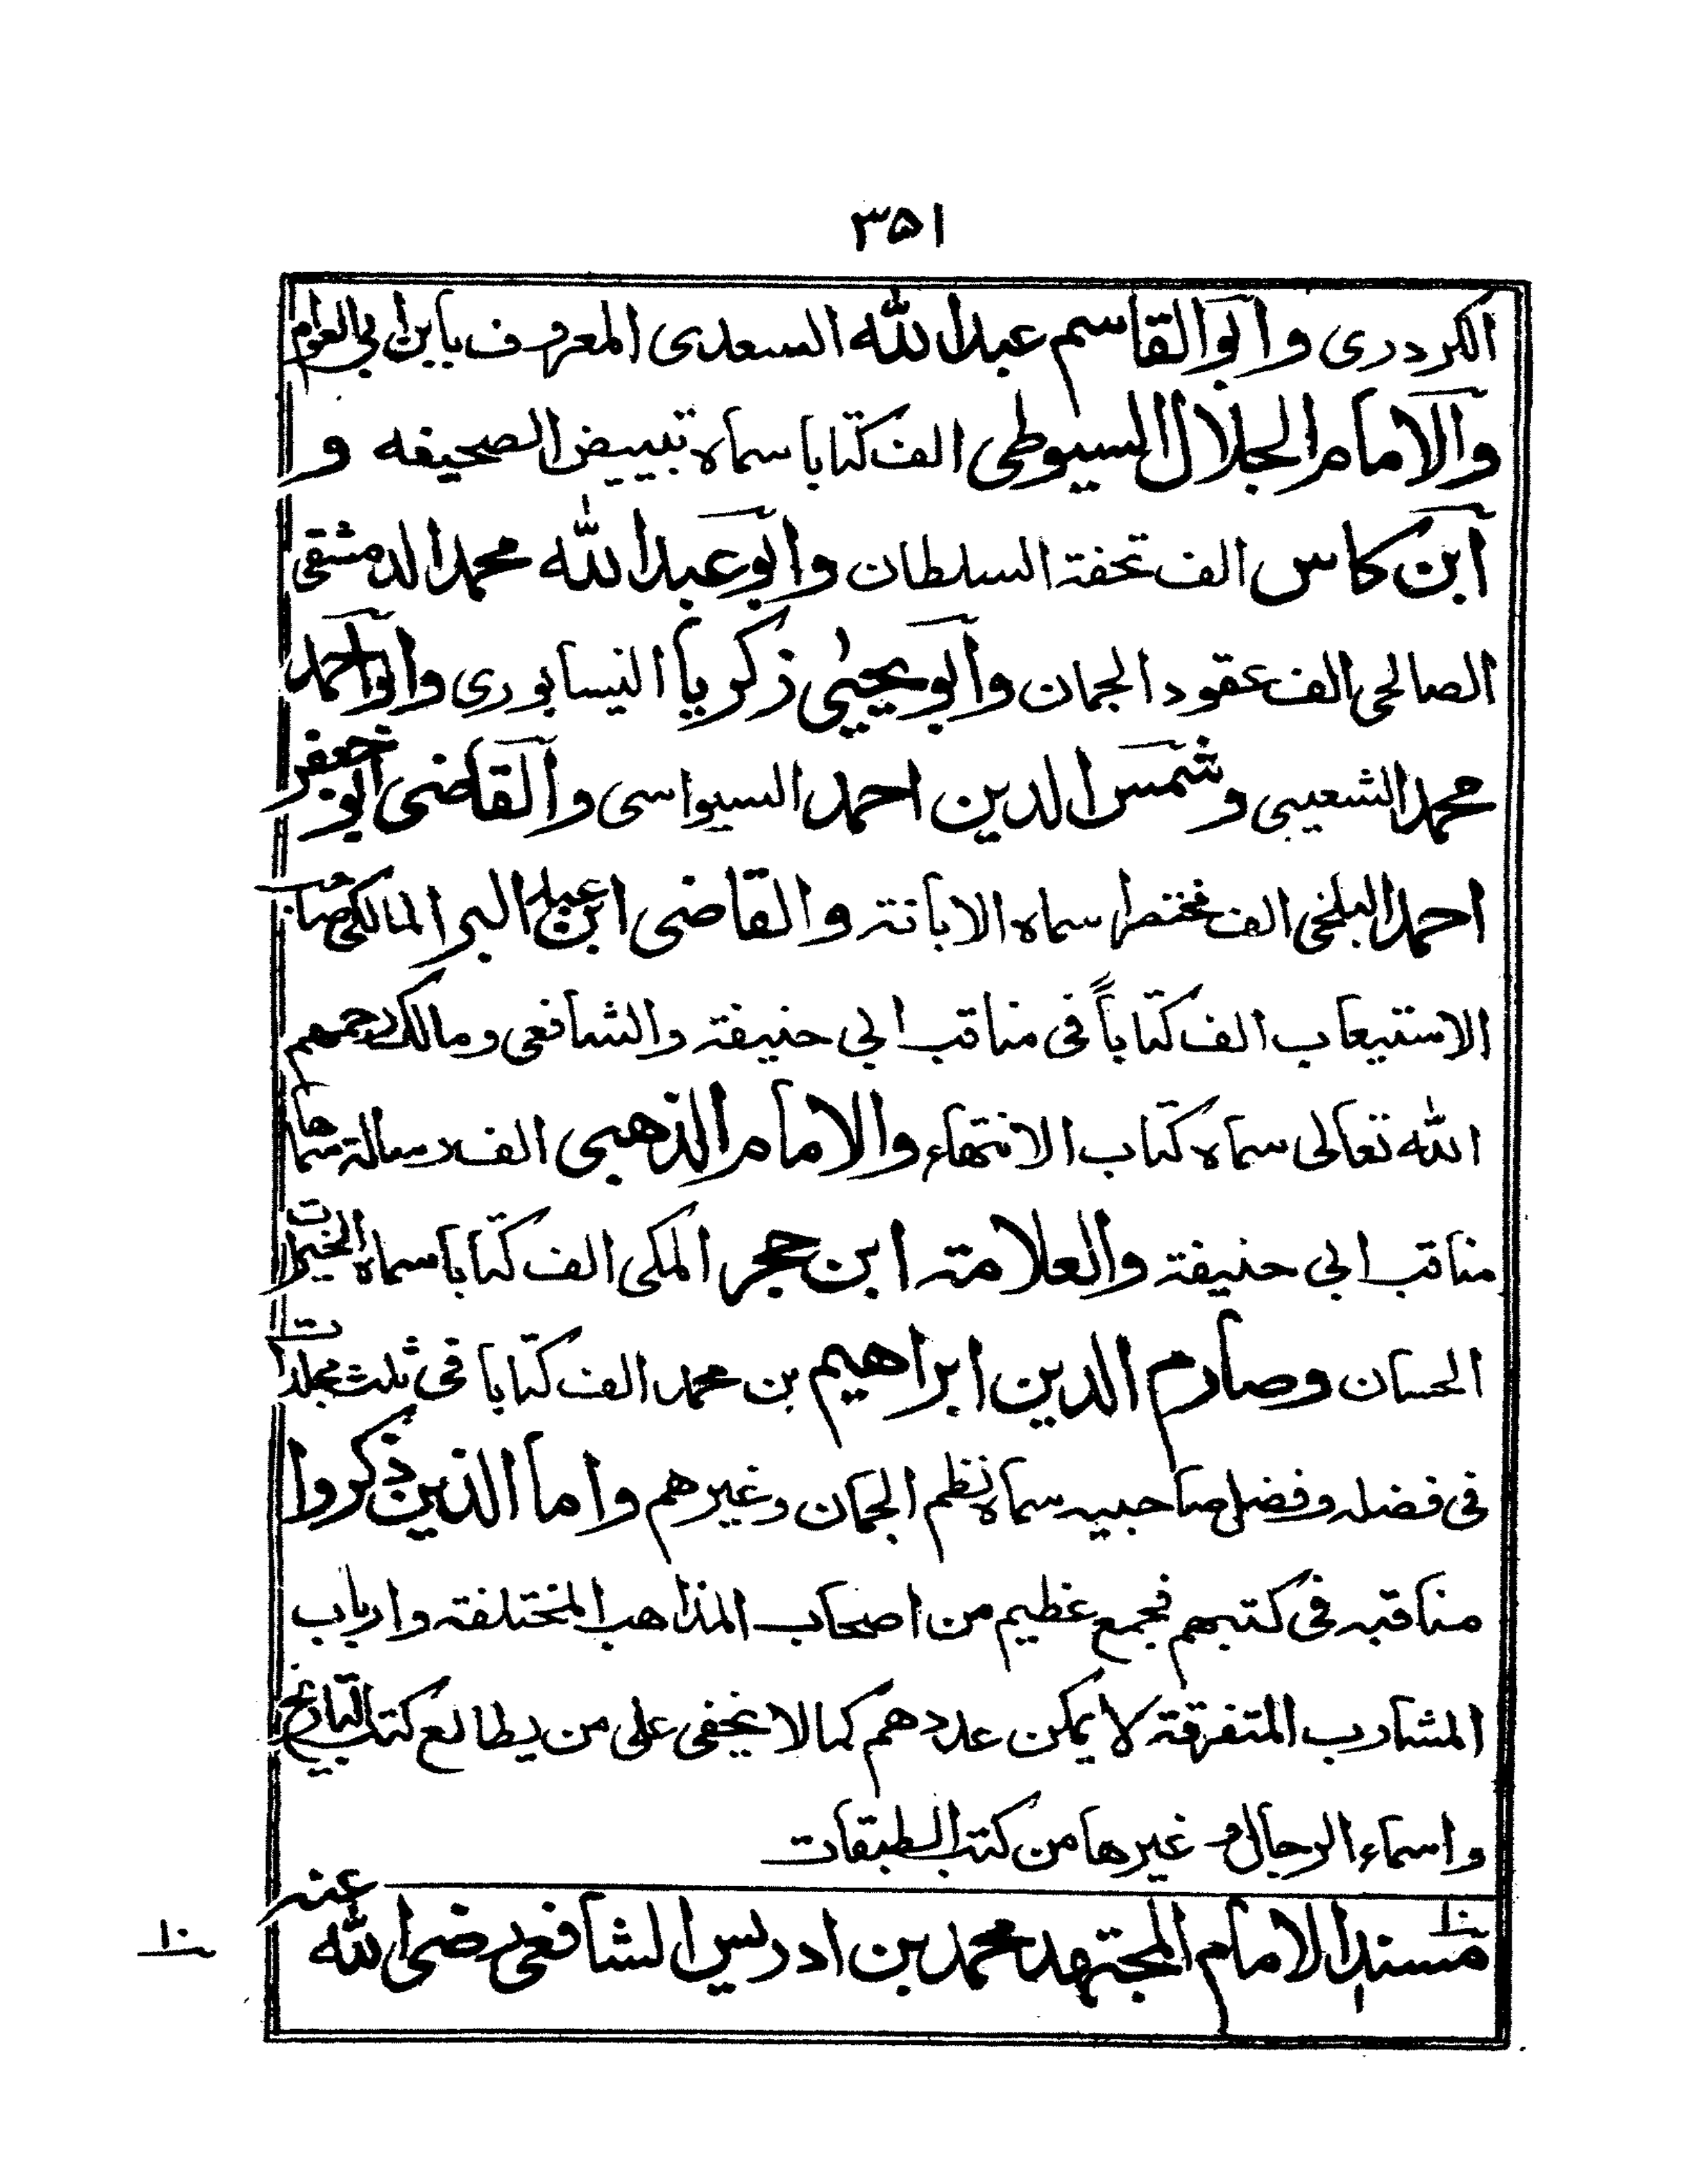 ٣۵١
الكردرى وابو القاسم عبد الله السعدى المعروف بابن ابى العوام
والامام الجلال السيوطى الف كتابا سماه تبييض الصحيفه و
ابن كاس الف تحفة السلطان وابو عبد الله محمد الدمشقى
الصالحى الف عقود الجمان وابو يحيى زكريا النيسابورى وابو احمد
محمد الشعيبى وشمس الدين احمد السيواسى والقاضى ابو جعفر
احمد البلخى الف مختصرا سماه الابانة والقاضى ابن عبد البر المالكى صاحب
الاستيعاب الف كتاباً فى مناقب ابى حنيفة والشافعى ومالك رحمهم
الله تعالى سماه كتاب الانتهاء والامام الذهبى الف رسالة سماها
مناقب ابى حنيفة والعلامة ابن حجر المكى الف كتابا سماه الخيرات
الحسان وصارم الدين ابراهيم بن محمد الف كتابا فى ثلث مجلدات
فى فضله وفضل صاحبيه سماه نظم الجمان وغيرهم واما الذين ذكروا
مناقبه فى كتبهم فجمع عظيم من اصحاب المذاهب المختلفة وارباب
المشارب المتفرقة لا يمكن عددهم كما لا يخفى على من يطالع كتب التاريخ
واسماء الرجال وغيرها من كتب الطبقات
مسند الامام المجتهد محمد بن ادريس الشافعى رضى الله عنه
١٠